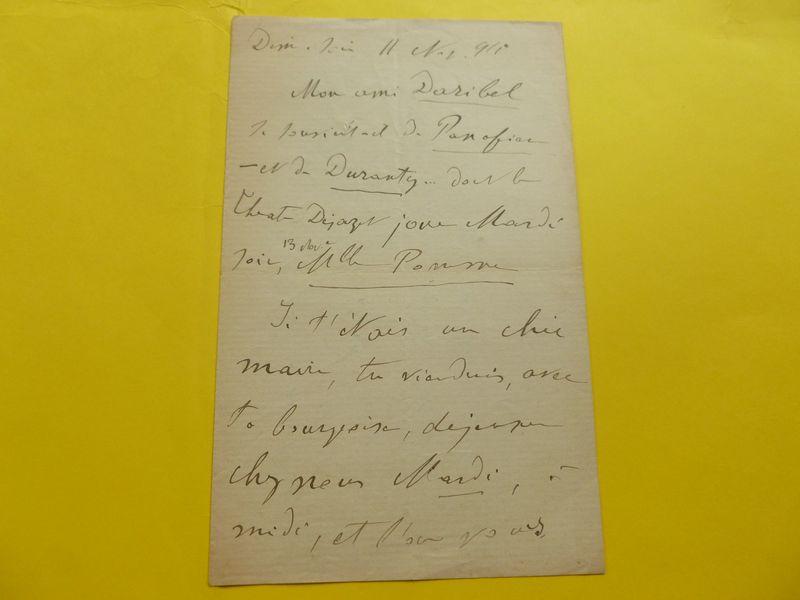 Dim. soir 11 Nov. 9
Mon ami Daribel
se souvient-il de
– et de Duranty .. dont le
Théât Déjazet joue Mardi
soir, 13 Mlle Pomme
Si t'étais un chic
maire, tu viendrais, avec
ta bourgeoise, déjeuner
chez nous Mardi, à
midi, et l'on vous